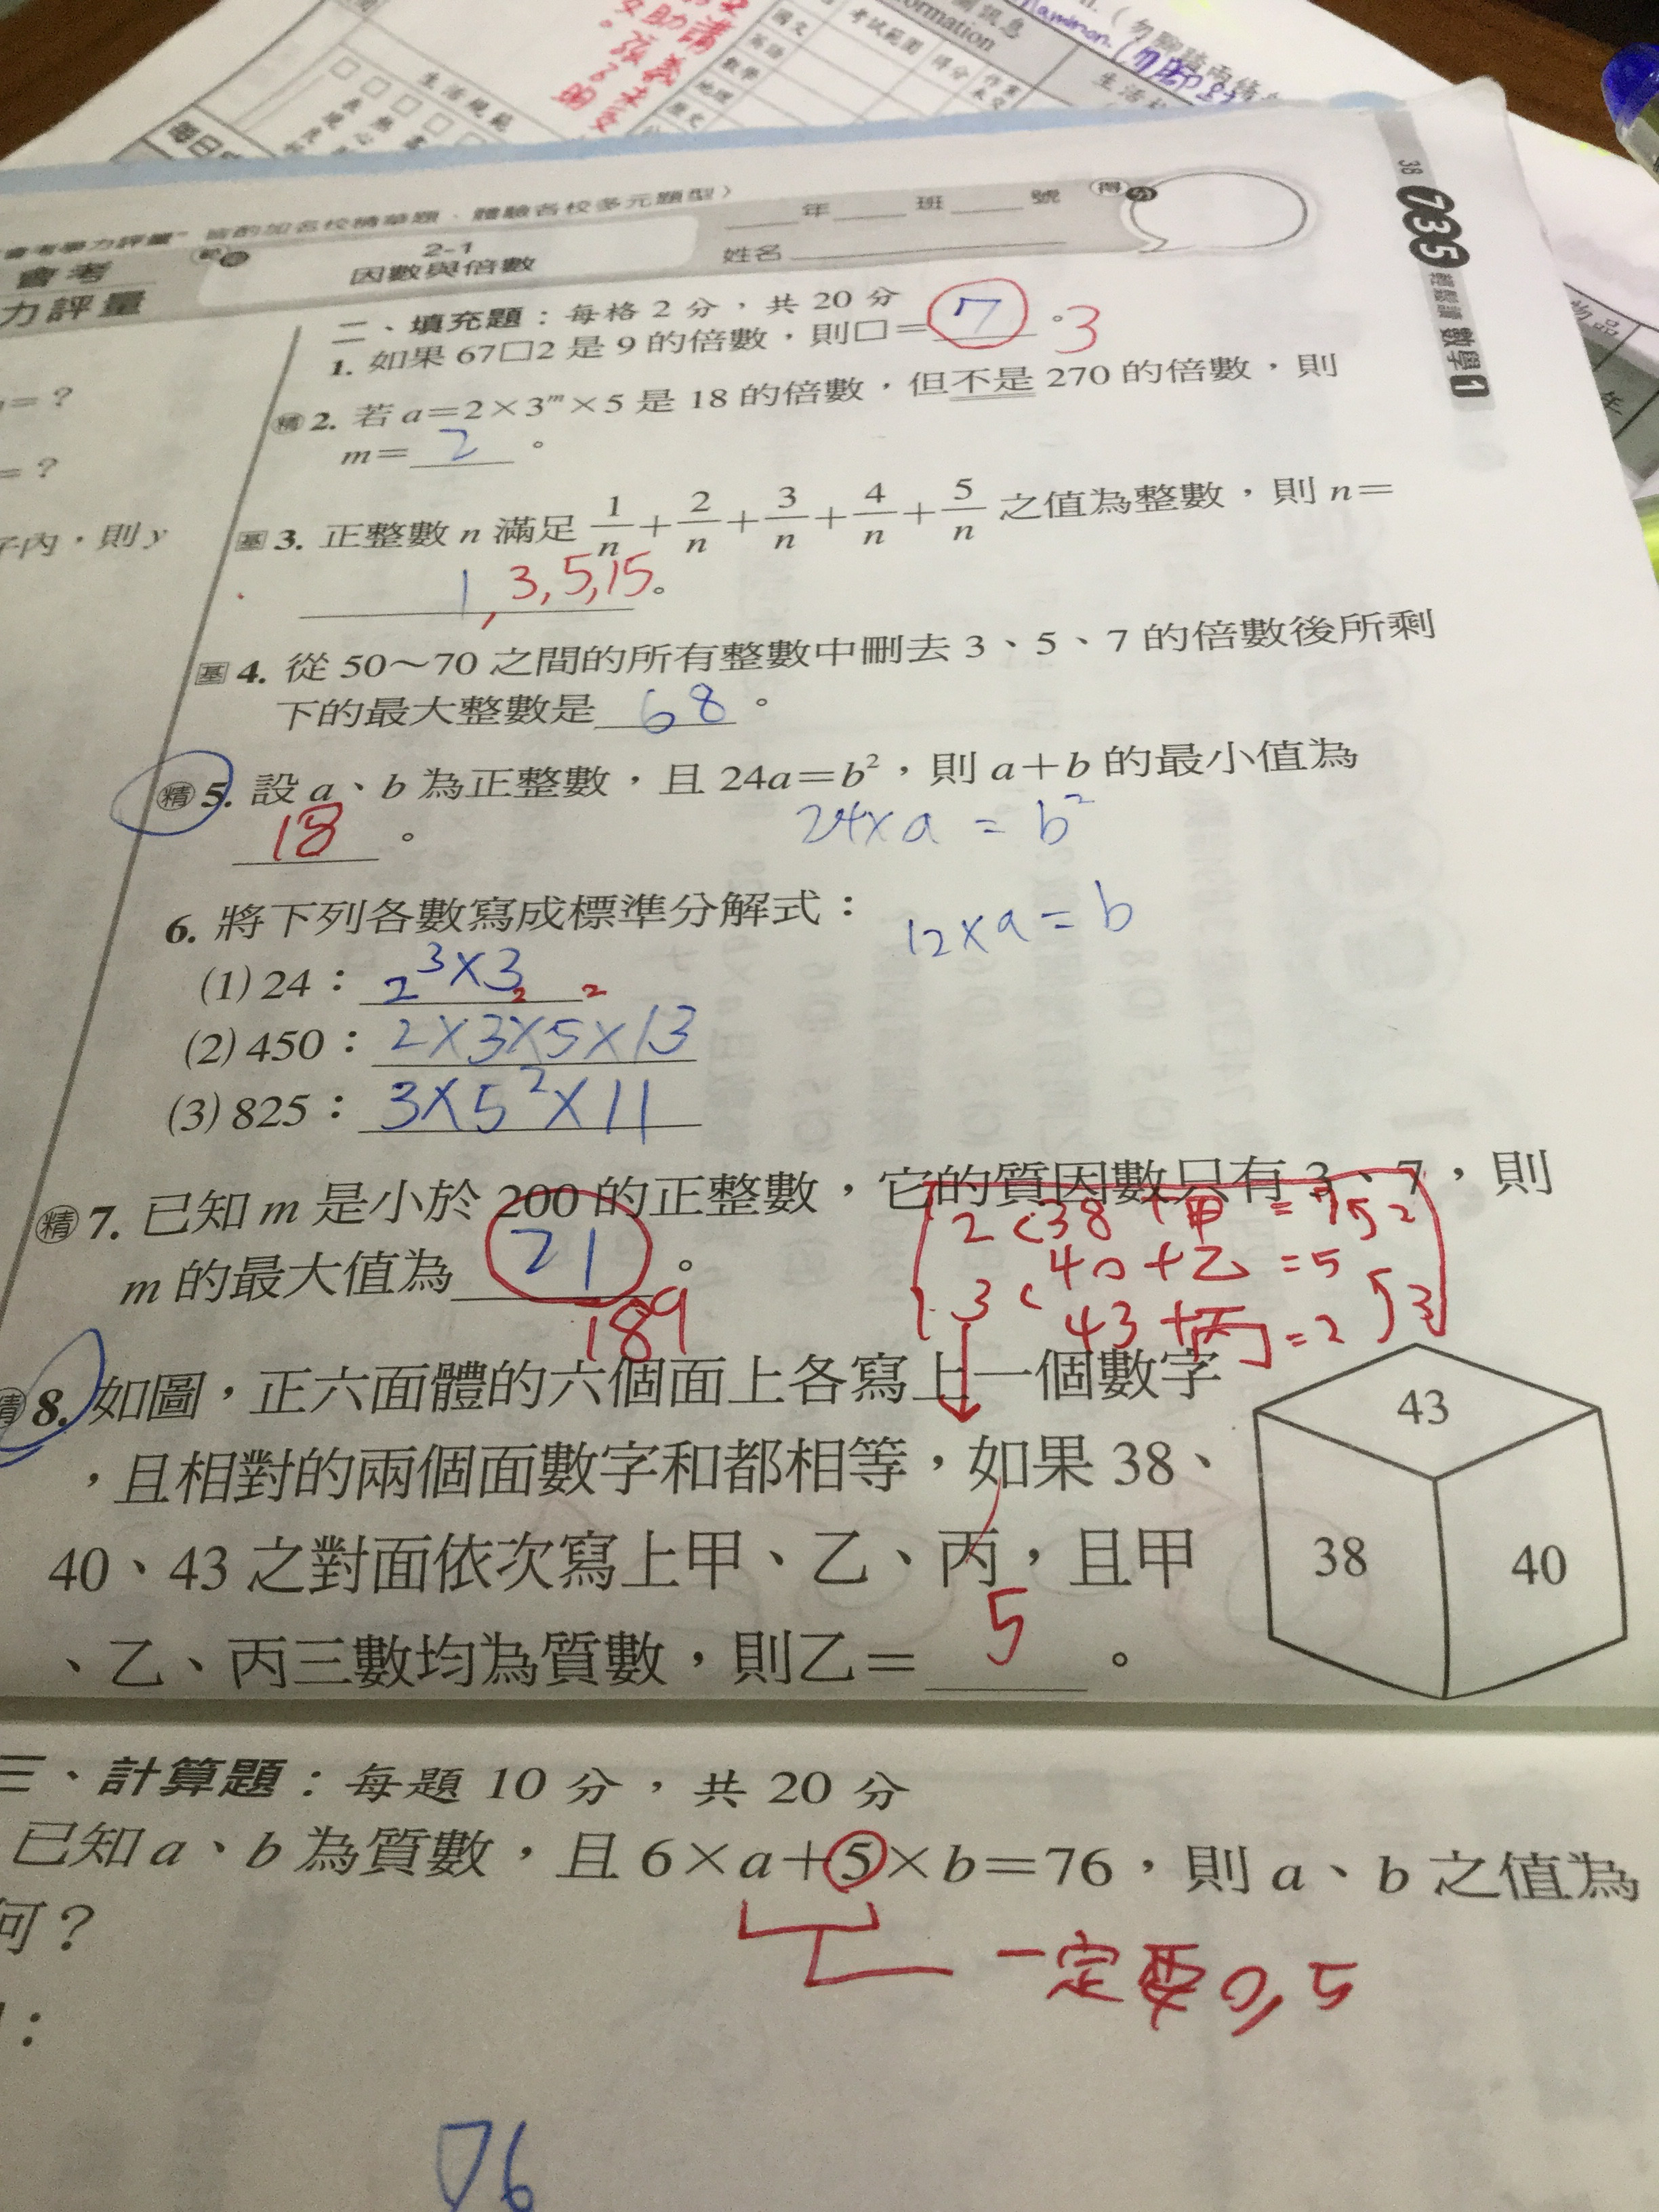 每日
生活規範
國文
英語
數學
地理
歷史
考試範圍
得分
38 735 輕鬆讀 數學1
皆酌加名校精華題,體驗各校多元題型〉
會考
力評量
2-1
因數與倍數
___年___班___號 得分
姓名
二、填充題:每格 2 分,共 20 分
1. 如果 67□2 是 9 的倍數,則□= 7 。3
精 2. 若 a=2×3ᵐ×5 是 18 的倍數,但不是 270 的倍數,則
m= 2 。
基 3. 正整數 n 滿足 1/n+2/n+3/n+4/n+5/n 之值為整數,則 n=
1, 3,5,15。
基 4. 從 50~70 之間的所有整數中刪去 3、5、7 的倍數後所剩
下的最大整數是 68 。
精 5. 設 a、b 為正整數,且 24a=b²,則 a+b 的最小值為
18 。
24×a = b²
12×a = b
6. 將下列各數寫成標準分解式:
(1) 24: 2³×3
(2) 450: 2×3²×5²×13
(3) 825: 3×5²×11
精 7. 已知 m 是小於 200 的正整數,它的質因數只有 3、7,則
m 的最大值為 21 。
189
40+乙=5
43+丙=2
精 8. 如圖,正六面體的六個面上各寫上一個數字
,且相對的兩個面數字和都相等,如果 38、
40、43 之對面依次寫上甲、乙、丙,且甲
、乙、丙三數均為質數,則乙= 5 。
43
38
40
=?
=?
子內,則 y
三、計算題:每題 10 分,共 20 分
已知 a、b 為質數,且 6×a+5×b=76,則 a、b 之值為
何?
一定要0,5
:
76